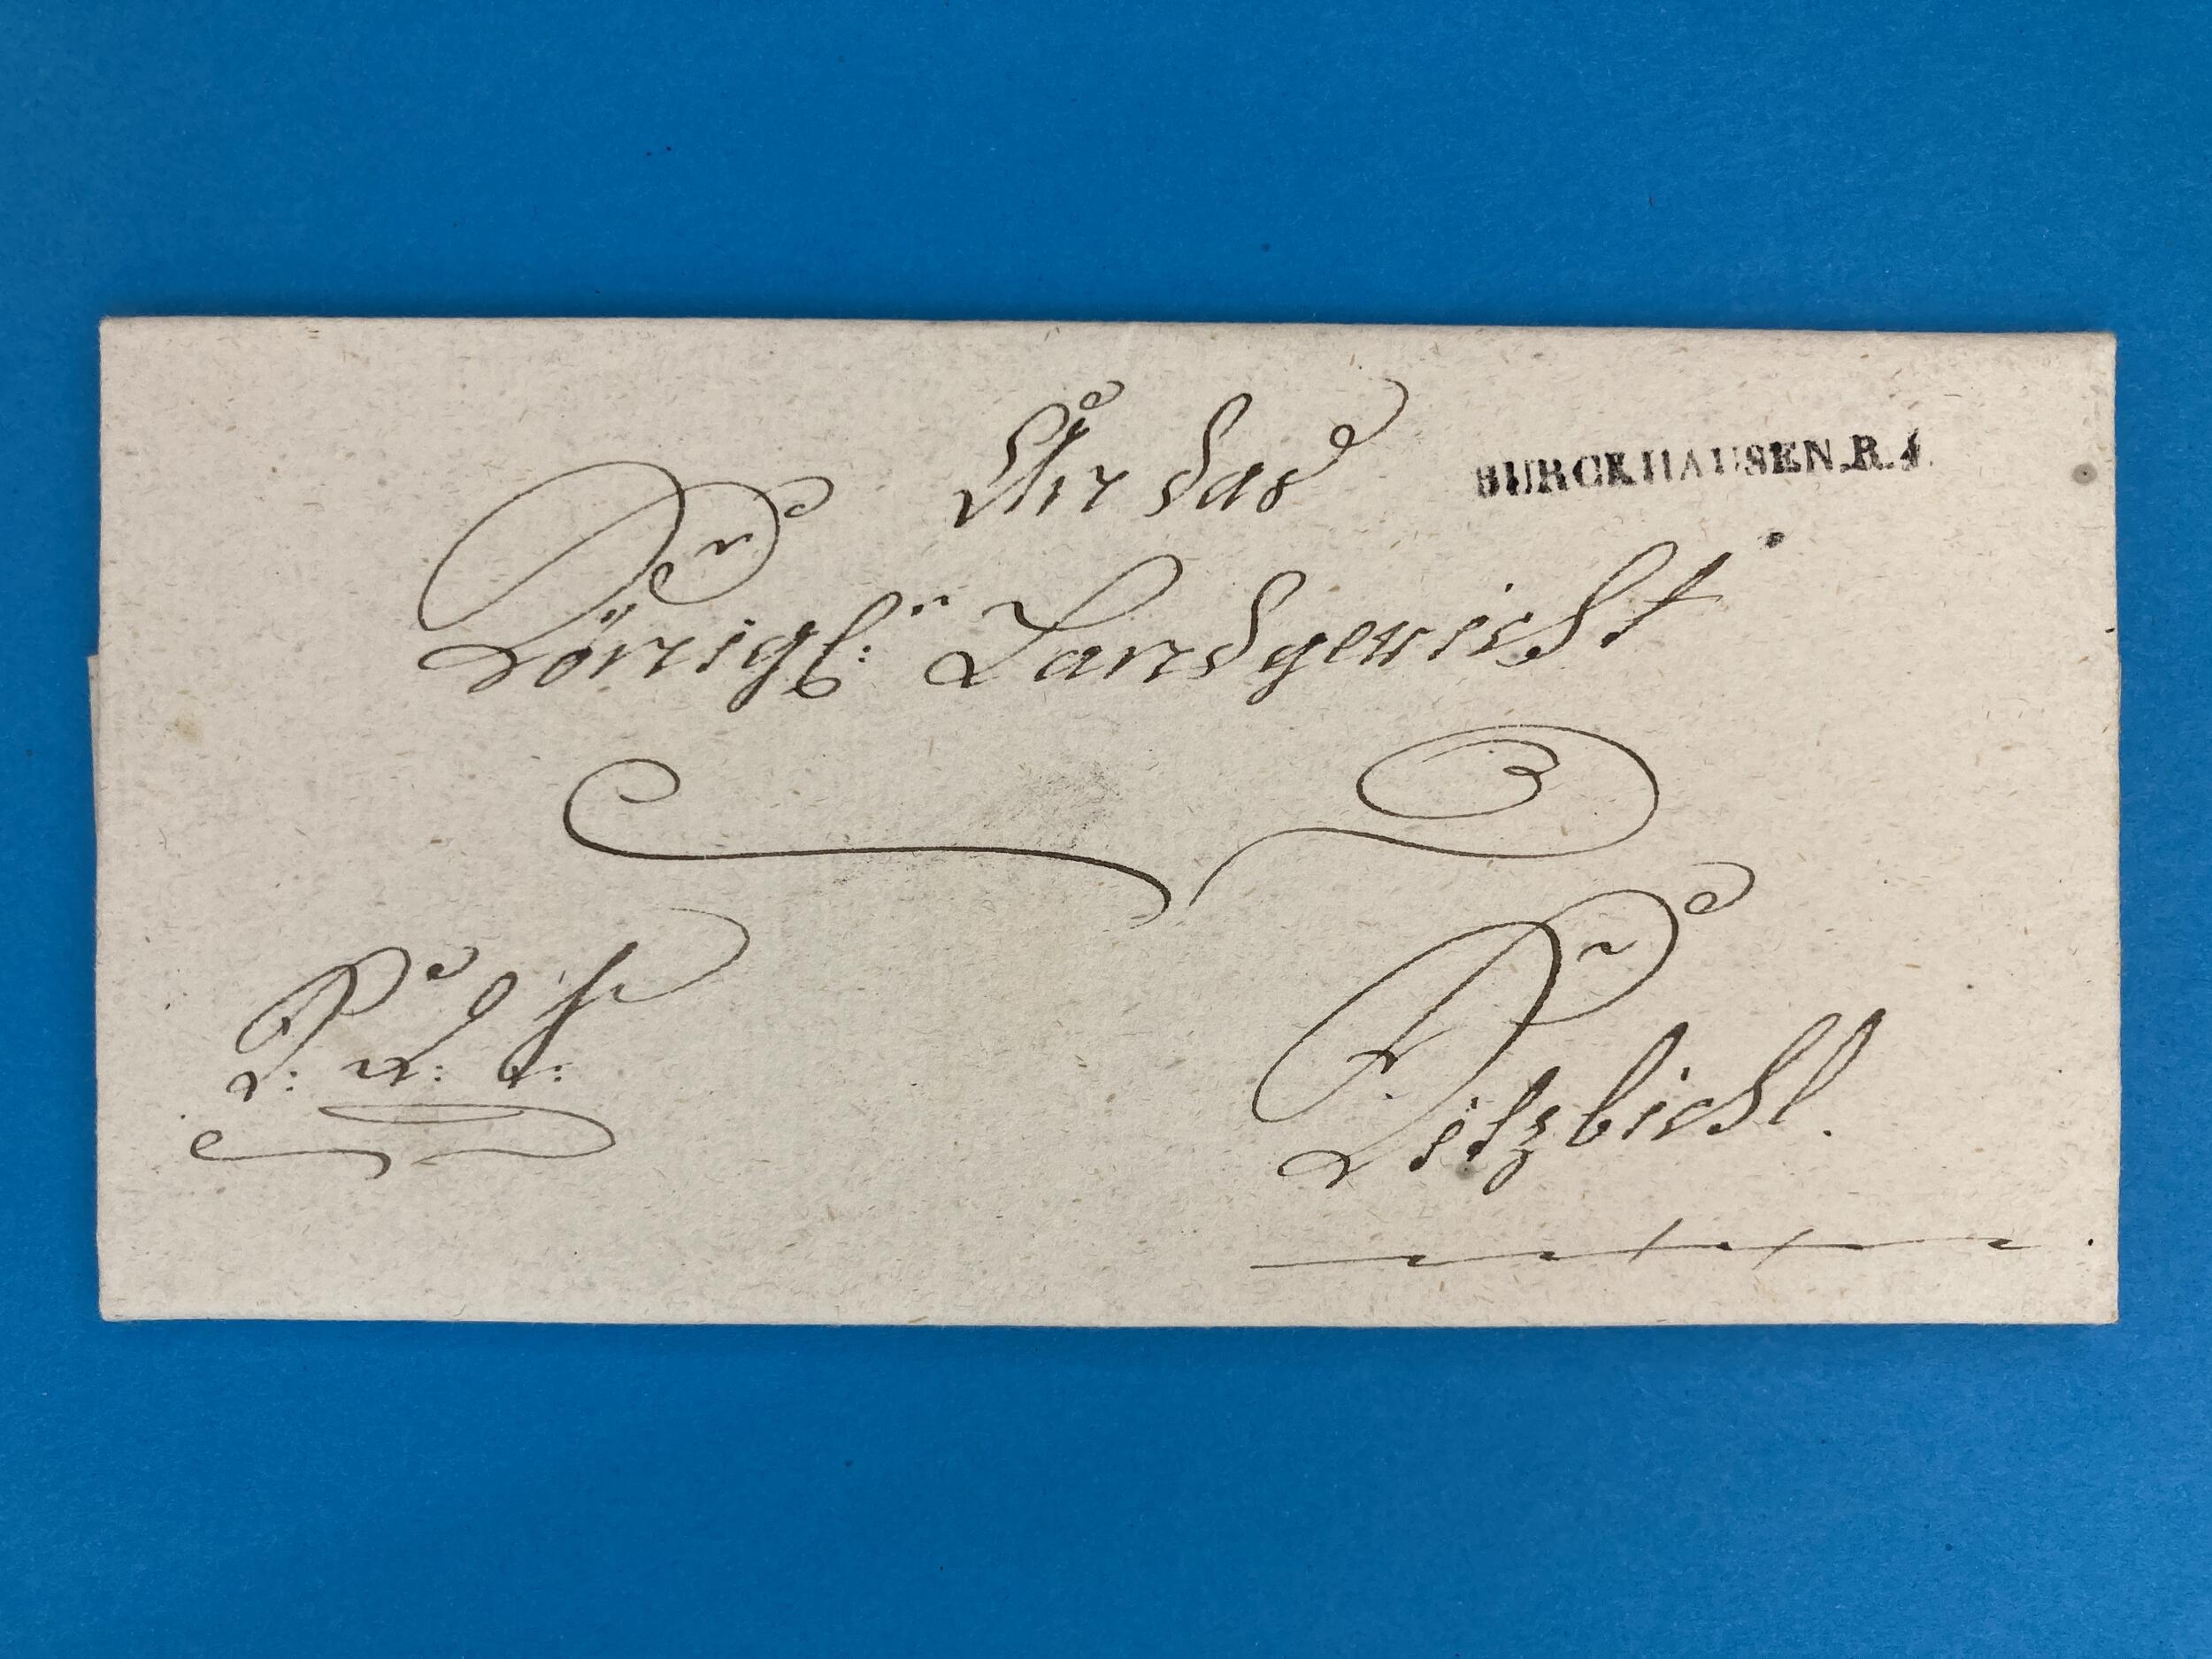 An das
BURCKHAUSEN.R.4.
Königl: Landgericht
Kitzbichl.